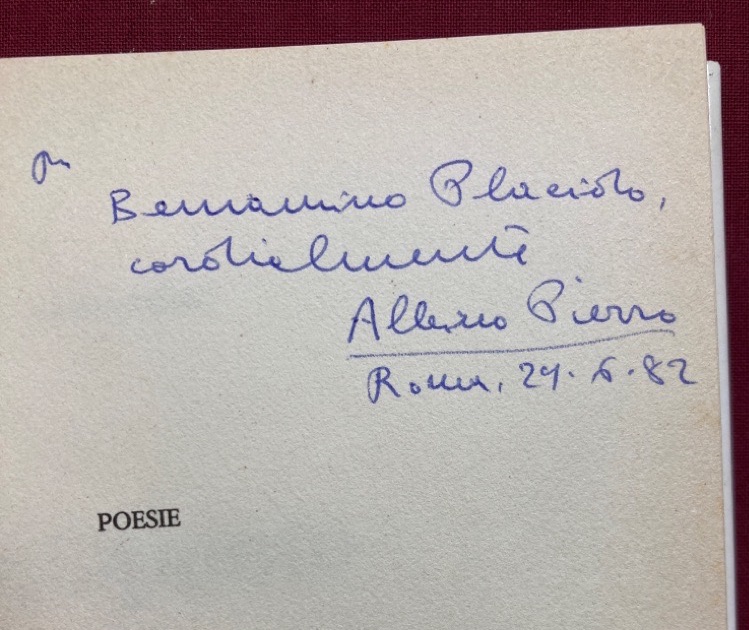 a
Beniamino Placido,
cordialmente
Albino Pierro
Roma, 29.6.82
POESIE